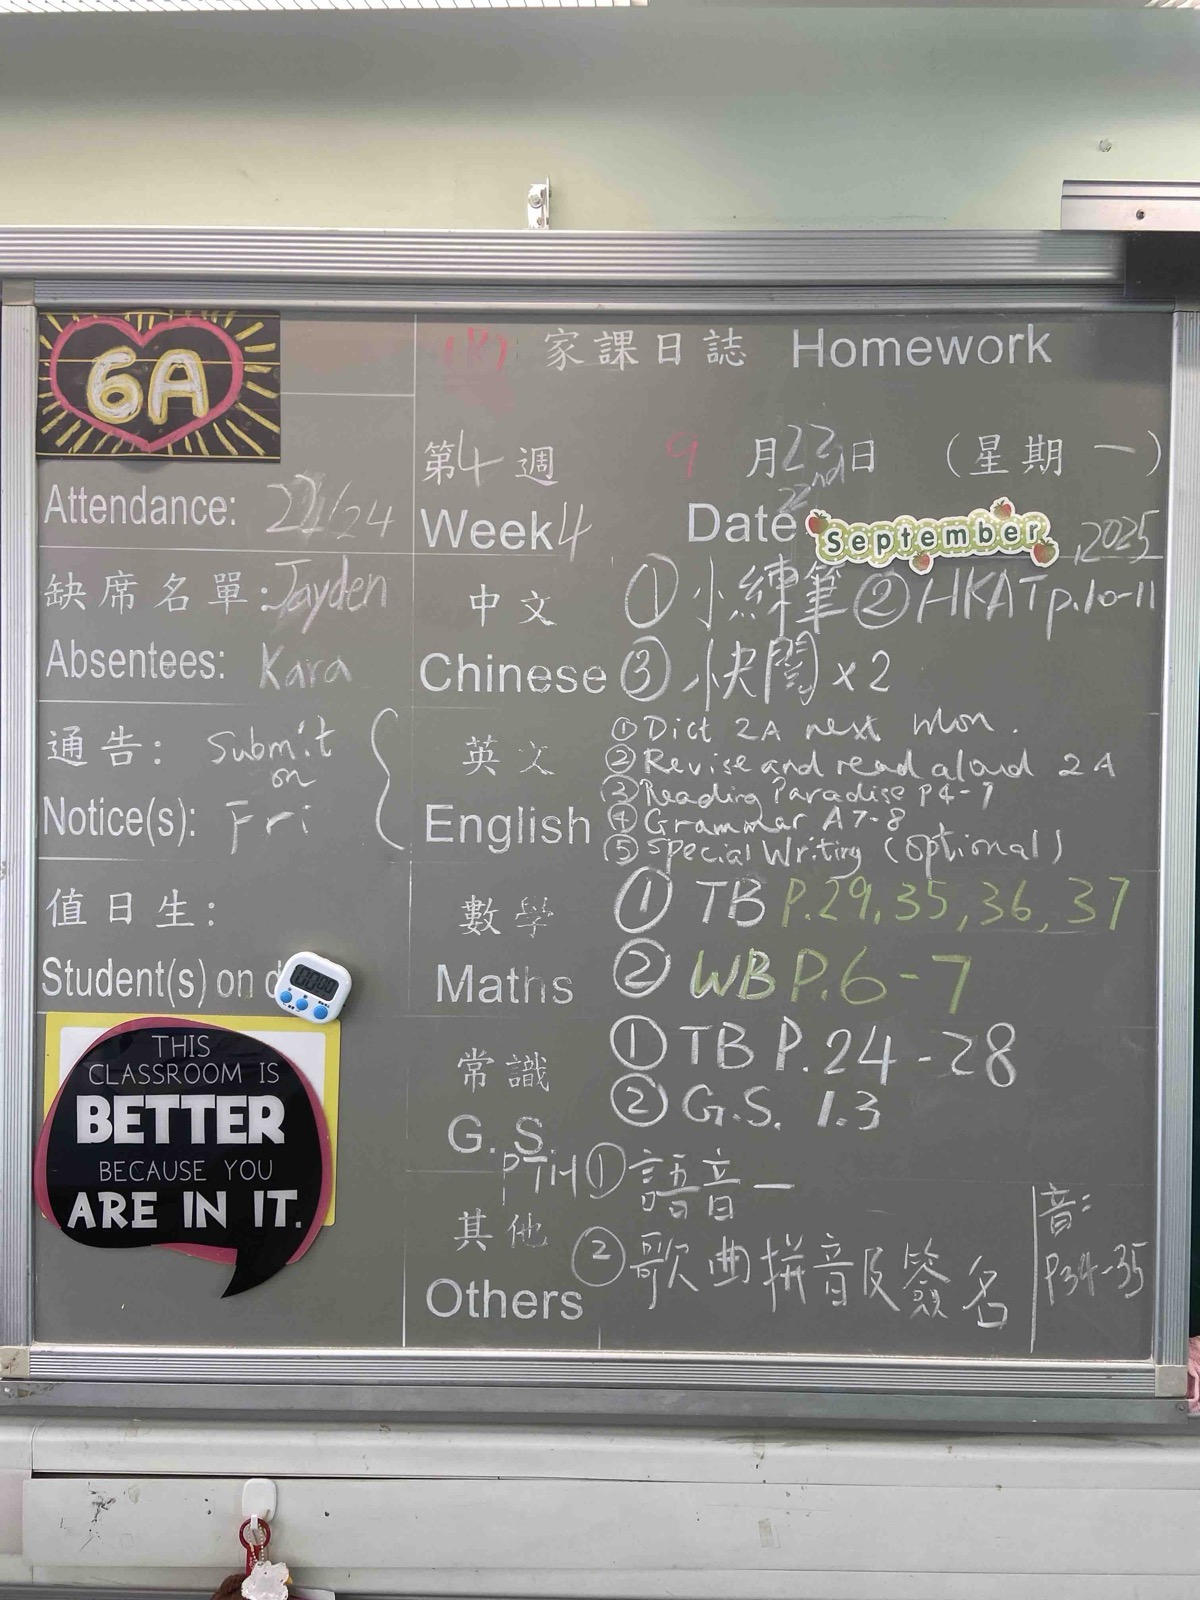 6A
家課日誌 Homework
第4週 9月23日 (星期一)
Week 4 Date 22nd September, 2025
Attendance: 22/24
缺席名單: Jayden
Absentees: Kara
通告: Submit on
Notice(s): Fri
值日生:
Student(s) on d
THIS
CLASSROOM IS
BETTER
BECAUSE YOU
ARE IN IT.
中文 ① 小練筆 ② HKAT p.10-11
Chinese ③ 快閱 x2
英文
English
① Dict 2A next Mon.
② Revise and read aloud 2A
③ Reading Paradise P4-7
④ Grammar A7-8
⑤ Special Writing (optional)
數學 ① TB P.29, 35, 36, 37
Maths ② WB P.6-7
常識 ① TB P.24-28
G.S. ② G.S. 1.3
PTH ① 語音一
其他 ② 歌曲拼音及簽名
Others
音:
P34-35